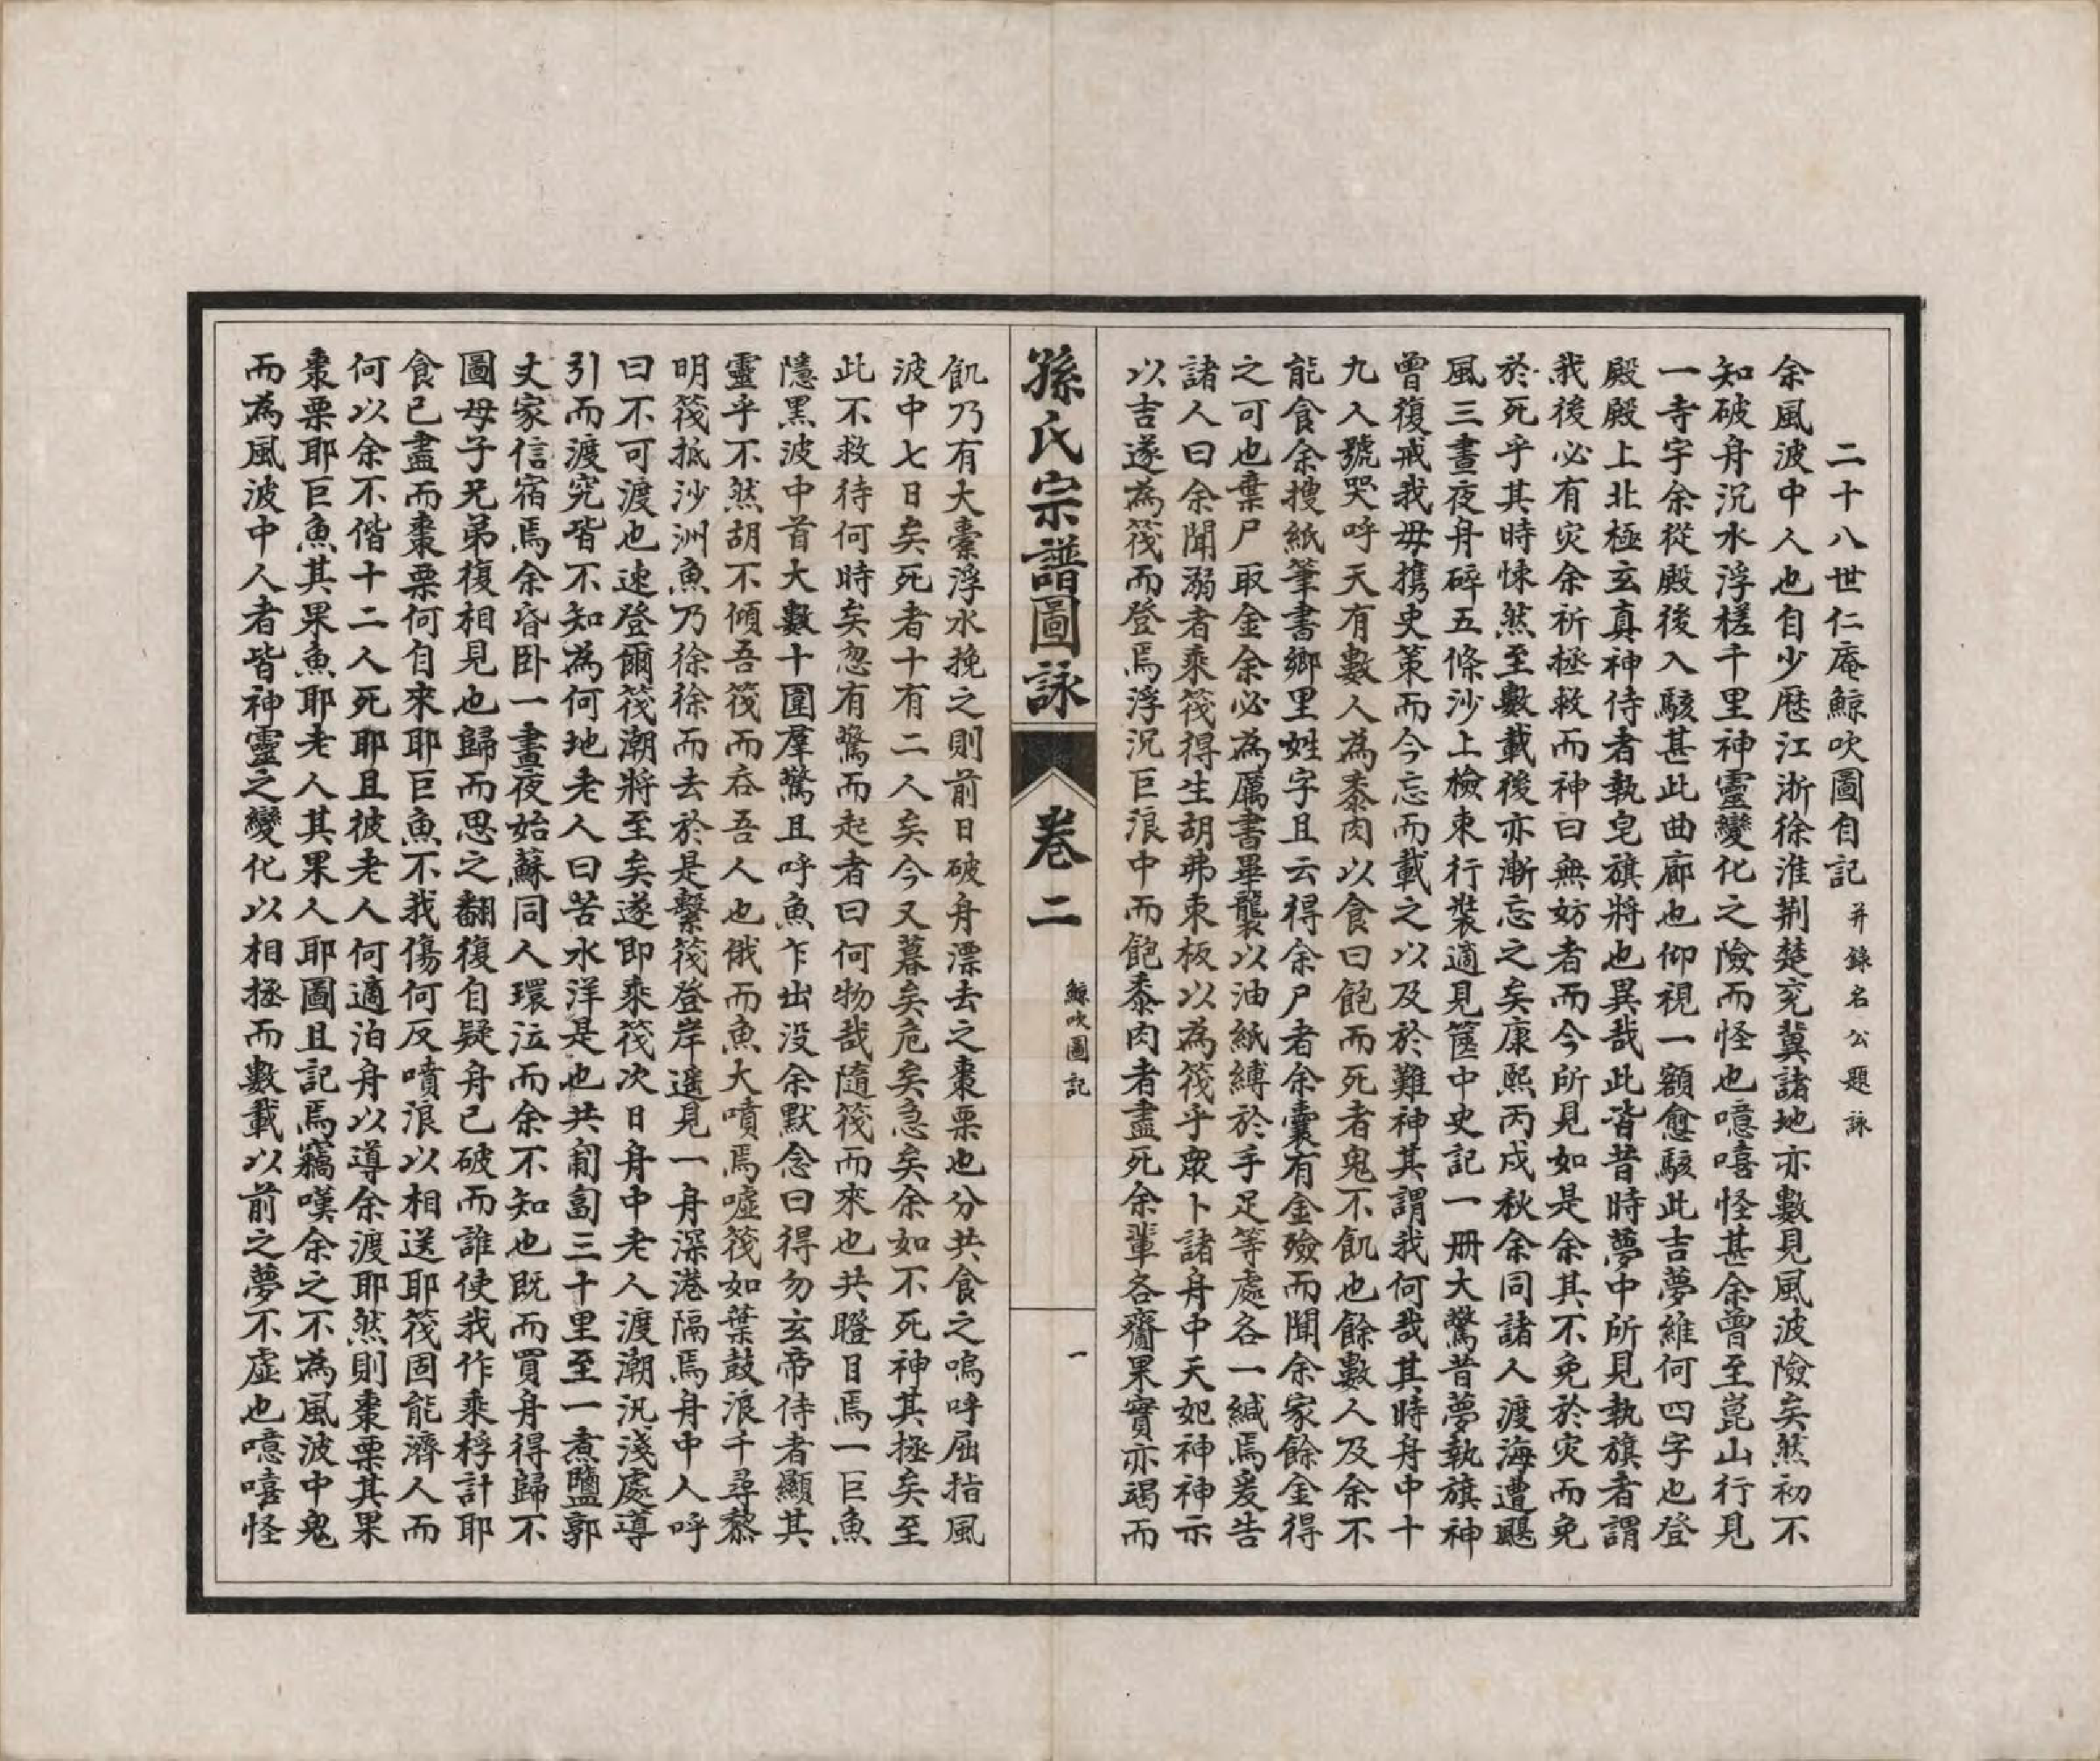 二十八世仁庵鯨吹圖自記并錄名公題詠
余風波中人也自少歷江浙徐淮荆楚兖冀諸地亦數見風波險矣然初不
知破舟沉水浮槎千里神靈變化之險而怪也噫嘻怪甚余曾至崑山行見
一寺宇余從殿後入駭甚此曲廊也仰視一額愈駭此吉夢維何四字也登
殿殿上北極玄真神侍者執皂旗將也異哉此皆昔時夢中所見執旗者謂
我後必有灾余祈拯救而神曰無妨者而今所見如是余其不免於灾而免
於死乎其時悚然至數載後亦漸忘之矣康熙丙戍秋余同諸人渡海遭颶
風三晝夜舟碎五條沙上檢束行裝適見篋中史記一冊大驚昔夢執旗神
曾復戒我毋携史策而今忘而載之以及於難神其謂我何哉其時舟中十
九人號哭呼天有數人為黍肉以食曰飽而死者鬼不飢也餘數人及余不
能食余搜紙筆書鄉里姓字且云得余尸者余囊有金殮而聞余家餘金得
之可也棄尸取金余必為厲書畢襲以油紙縛於手足等處各一緘焉爰告
諸人曰余聞溺者乘筏得生胡弗束板以為筏乎眾卜諸舟中天妃神神示
以吉遂為筏而登焉浮沉巨浪中而飽黍肉者盡死余輩各齎果實亦竭而
孫氏宗譜圖詠
卷二
鯨吹圖記
一
飢乃有大橐浮水挽之則前日破舟漂去之棗栗也分共食之嗚呼屈指風
波中七日矣死者十有二人矣今又暮矣危矣急矣余如不死神其拯矣至
此不救待何時矣忽有驚而起者曰何物哉隨筏而來也共瞪目焉一巨魚
隱黑波中首大數十圍羣驚且呼魚乍出没余默念曰得勿玄帝侍者顯其
靈乎不然胡不傾吾筏而吞吾人也俄而魚大噴焉噓筏如葉鼓浪千尋黎
明筏抵沙洲魚乃徐徐而去於是繫筏登岸遥見一舟深港隔焉舟中人呼
曰不可渡也速登爾筏潮將至矣遂即乘筏次日舟中老人渡潮汛淺處導
引而渡究皆不知為何地老人曰苦水洋是也共匍匐三十里至一煮鹽郭
丈家信宿焉余昏卧一晝夜始蘇同人環泣而余不知也既而買舟得歸不
圖母子兄弟復相見也歸而思之翻復自疑舟已破而誰使我作乘桴計耶
食已盡而棗栗何自來耶巨魚不我傷何反噴浪以相送耶筏固能濟人而
何以余不偕十二人死耶且彼老人何適泊舟以導余渡耶然則棗栗其果
棗栗耶巨魚其果魚耶老人其果人耶圖且記焉竊嘆余之不為風波中鬼
而為風波中人者皆神靈之變化以相拯而數載以前之夢不虛也噫嘻怪